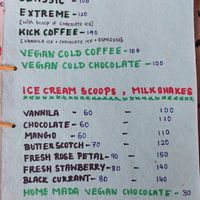 CLASSIC - 100
EXTREME - 120
(WITH SCOOP OF CHOCOLATE ICE)
KICK COFFEE - 140
(VANNILA ICE + CHOCOLATE ICE + ESPRESSO)
VEGAN COLD COFFEE - 100
VEGAN COLD CHOCOLATE - 100
ICE CREAM SCOOPS, MILKSHAKES
VANNILA - 60 - 100
CHOCOLATE - 60 - 110
MANGIO - 60 - 110
BUTTERSCOTCH - 70 - 120
FRESH ROSE PETAL - 90 - 150
FRESH STAWBERRY - 80 - 140
BLACK CURRANT - 80 - 140
HOME MADA VEGAN CHOCOLATE - 30